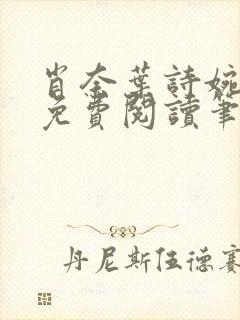 肖奈葉詩婉
免費閱讀筆
丹尼斯伍德賽